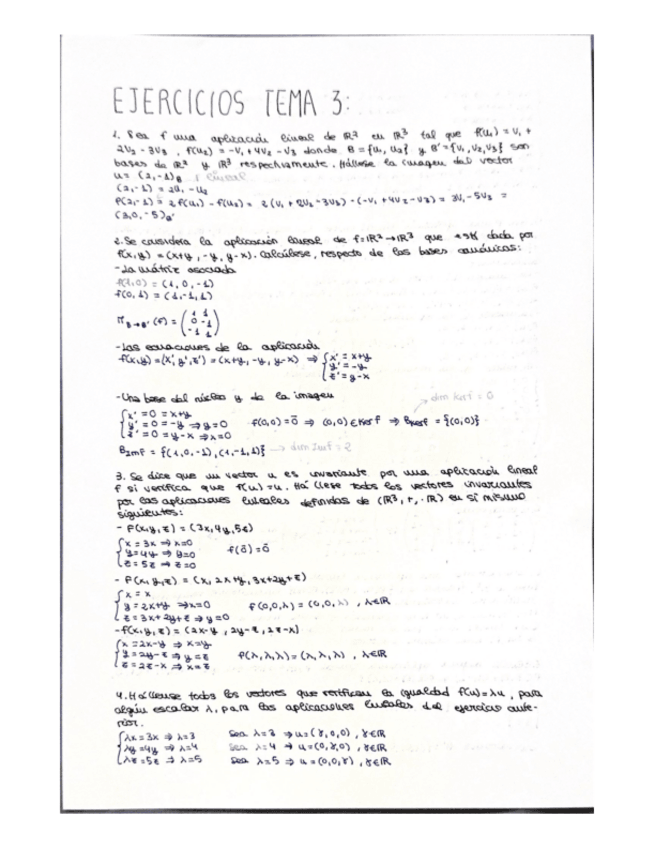 EJERCICIOS TEMA 3:
1. Sea f una aplicación lineal de ℝ² en ℝ³ tal que f(u₁) = v₁ +
2v₂ - 3v₃ , f(u₂) = -v₁ + 4v₂ - v₃ donde B = {u₁, u₂} y B' = {v₁, v₂, v₃} son
bases de ℝ² y ℝ³ respectivamente. Hállese la imagen del vector
u = (2,-1)B
(2,-1) = 2u₁ - u₂
f(2,-1) = 2f(u₁) - f(u₂) = 2(v₁ + 2v₂ - 3v₃) - (-v₁ + 4v₂ - v₃) = 3v₁ - 5v₃ =
(3,0,-5)B'
2. Se considera la aplicación lineal de f = ℝ² → ℝ³ que está dada por
f(x,y) = (x+y, -y, y-x). Calcúlese, respecto de las bases canónicas:
- La matriz asociada
f(1,0) = (1, 0, -1)
f(0,1) = (1,-1,1)
M B→B' (f) = ( 1 1
0 -1
-1 1 )
- Las ecuaciones de la aplicación
f(x,y) = (x', y', z') = (x+y, -y, y-x) ⇒ { x' = x+y
y' = -y
z' = y-x
- Una base del núcleo y de la imagen
dim Kerf = 0
{ x' = 0 = x+y
y' = 0 = -y ⇒ y=0 f(0,0) = 0̄ ⇒ (0,0) ∈ Kerf ⇒ BKerf = {(0,0)}
z' = 0 = y-x ⇒ x=0
BImf = {(1,0,-1), (1,-1,1)} → dim Imf = 2
3. Se dice que un vector u es invariante por una aplicación lineal
f si verifica que f(u) = u. Hállese todos los vectores invariantes
por las aplicaciones lineales definidas de (ℝ³, +, ·ℝ) en sí mismo
siguientes:
- f(x,y,z) = (3x,4y,5z)
{ x = 3x ⇒ x=0
y = 4y ⇒ y=0 f(0̄) = 0̄
z = 5z ⇒ z=0
- f(x,y,z) = (x, 2x+y, 3x+2y+z)
{ x = x
y = 2x+y ⇒ x=0 f(0,0,λ) = (0,0,λ) , λ∈ℝ
z = 3x+2y+z ⇒ y=0
- f(x,y,z) = (2x-y , 2y-z , 2z-x)
{ x = 2x-y ⇒ x=y
y = 2y-z ⇒ y=z f(λ,λ,λ) = (λ,λ,λ) , λ∈ℝ
z = 2z-x ⇒ x=z
4. Hállense todos los vectores que verifican la igualdad f(u) = λu , para
algún escalar λ, para las aplicaciones lineales del ejercicio ante-
rior.
{ λx = 3x ⇒ λ=3 Sea λ=3 ⇒ u=(γ,0,0) , γ∈ℝ
λy = 4y ⇒ λ=4 Sea λ=4 ⇒ u=(0,γ,0) , γ∈ℝ
λz = 5z ⇒ λ=5 Sea λ=5 ⇒ u=(0,0,γ) , γ∈ℝ